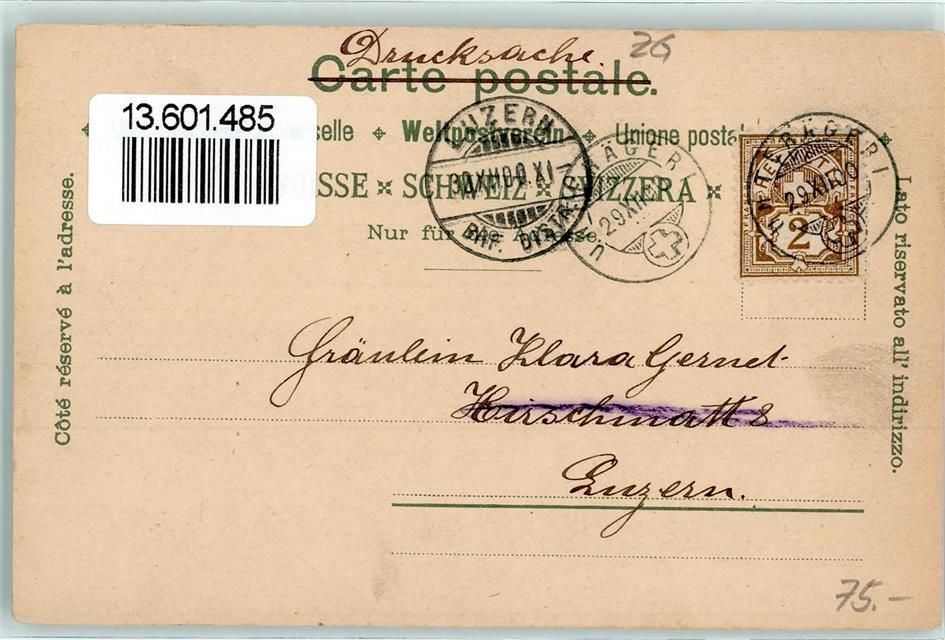 Drucksache. ZG
Carte postale.
13.601.485
selle Weltpostverein Unione posta
SSE SCHWEIZ SVIZZERA
Nur für die Adresse
LUZERN
30.XII.00.XI
BHF. DISTR.
UNTERÄGERI
29.XII.00
UNTERÄGERI
29.XII.00
2
Côté réservé à l'adresse.
Lato riservato all' indirizzo.
Fräulein Klara Gernet
Hirschmatt 8
Luzern.
75.-